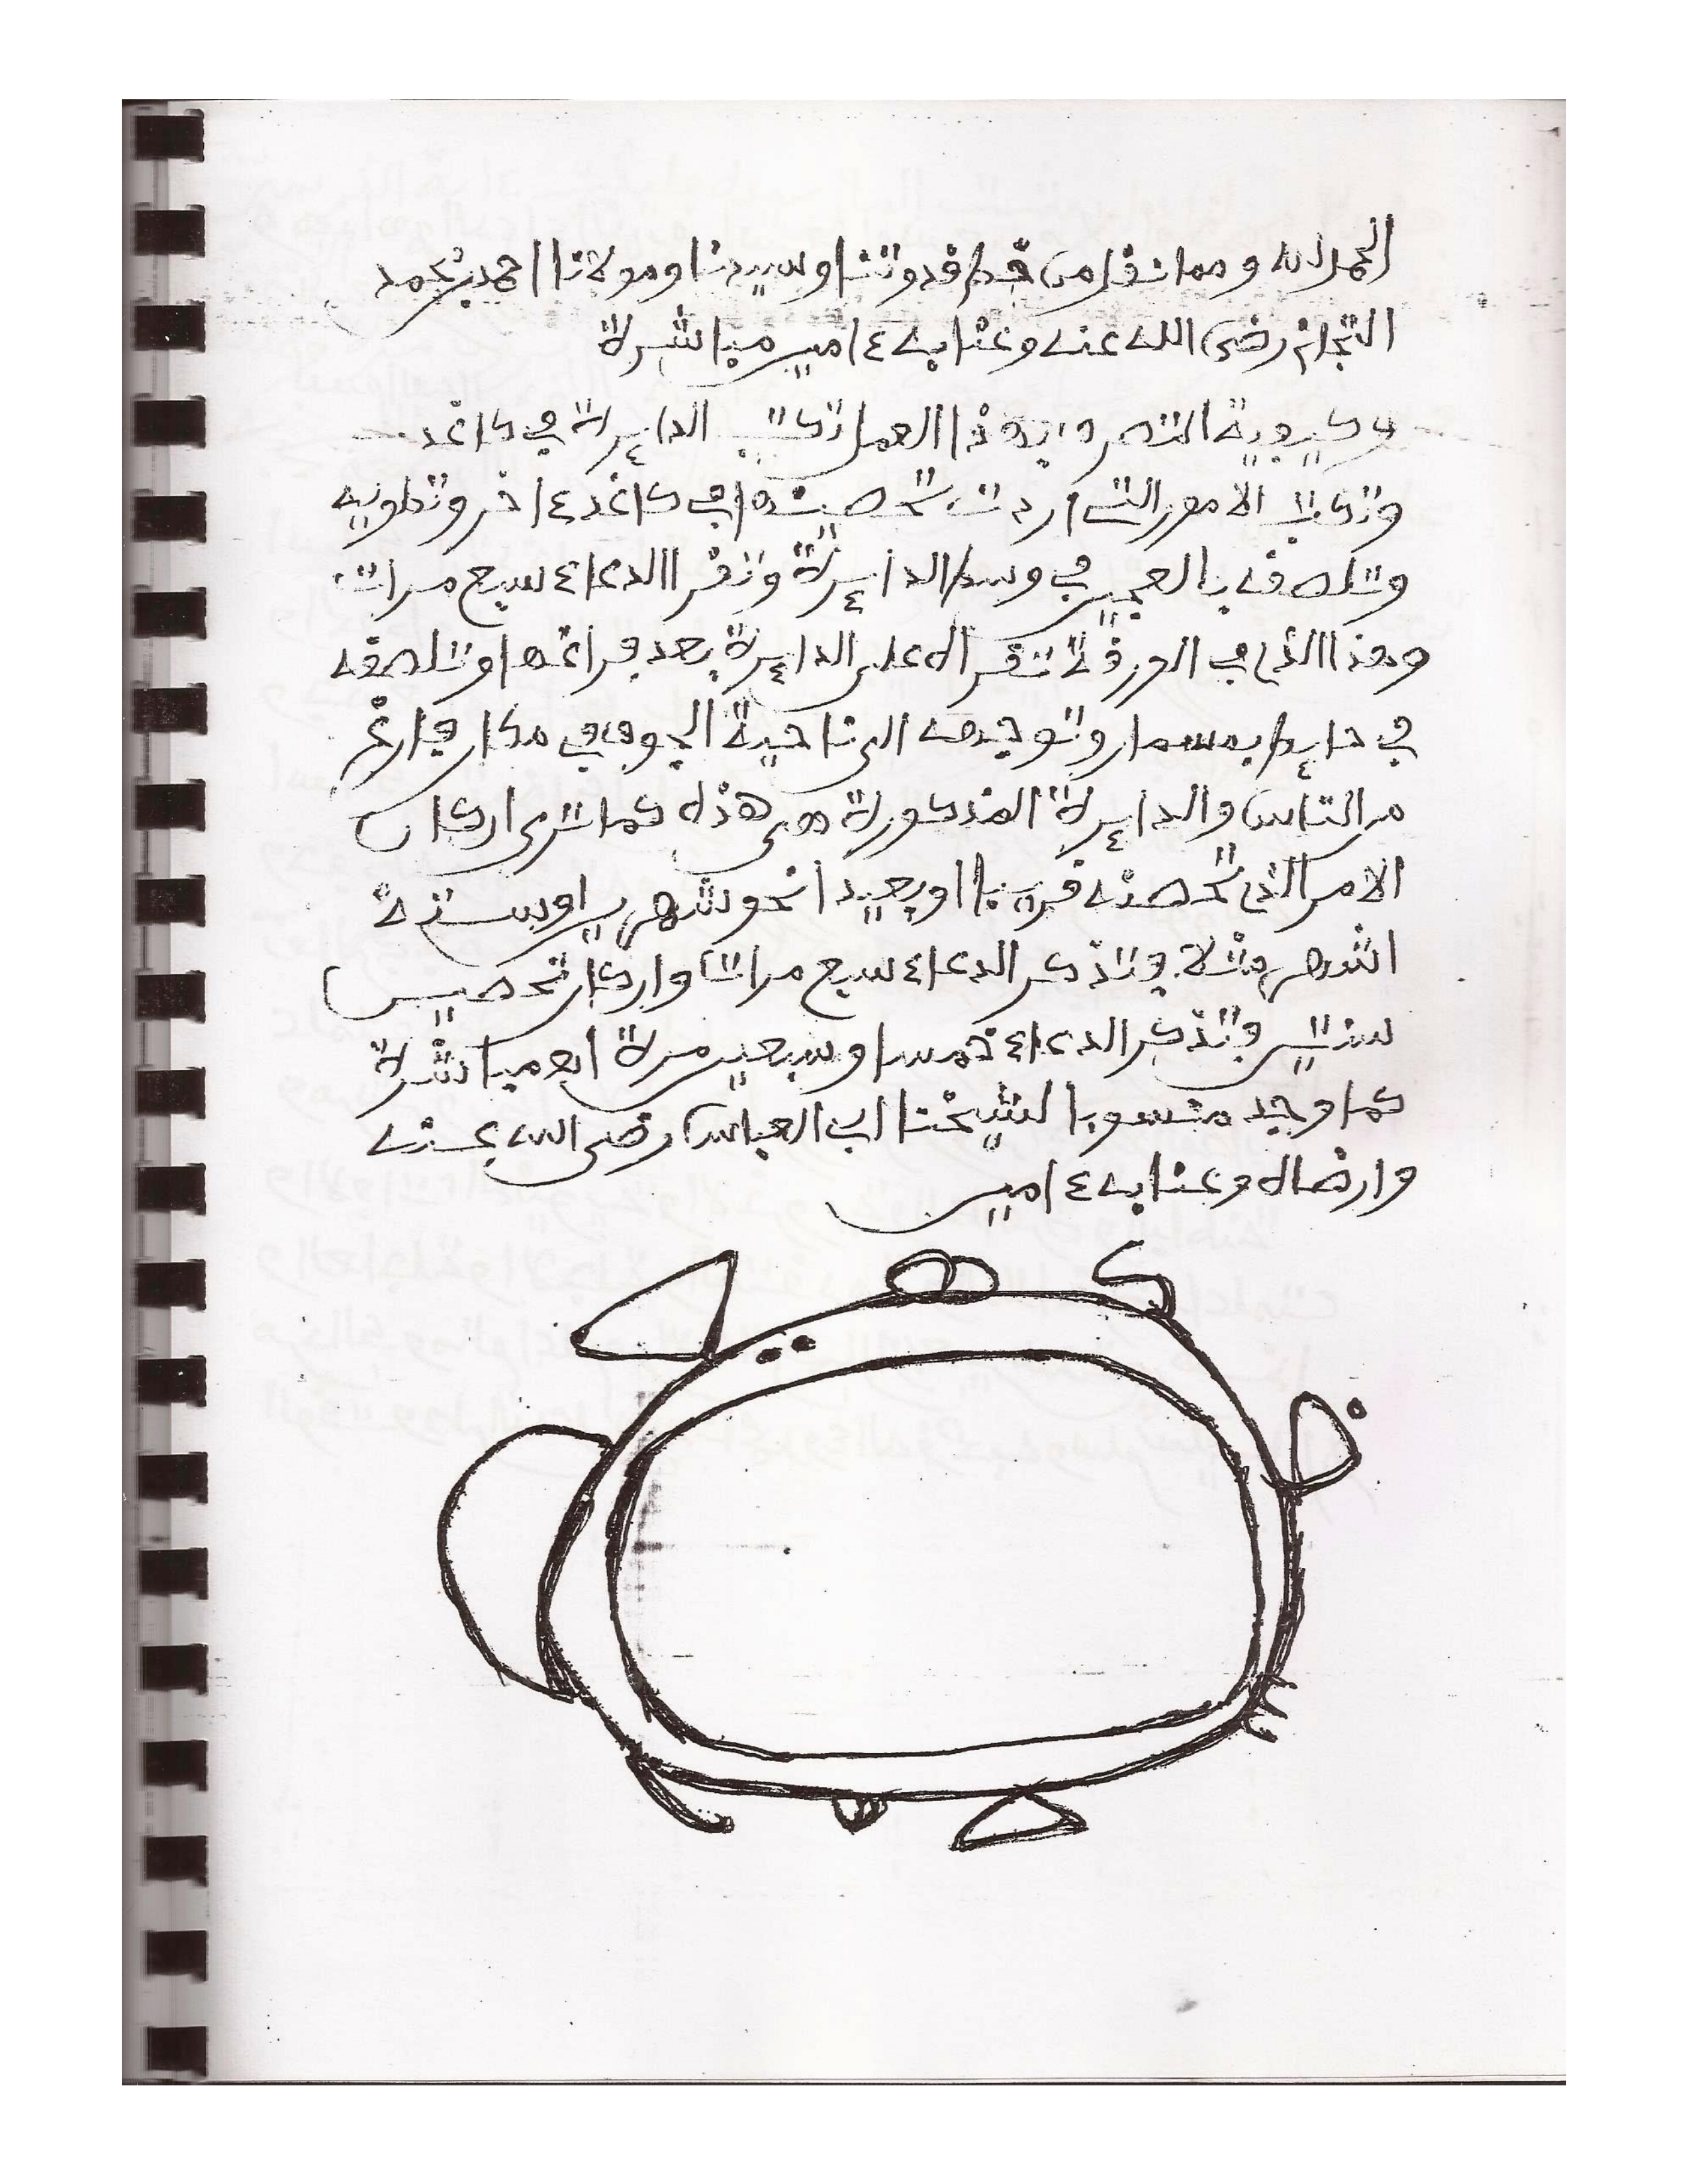 الحمد لله ومما نقل من خط قدوتنا وسيدنا ومولانا احمد بن محمد
التجاني رضي الله عنه وعنا به ءامين مباشرة
وكيفية التصرف بهذا العمل تكتب الدايرة في كاغد
وتكتب الامور التي اردت تحصينها في كاغد ءاخر وتطويه
وتلصقه بالعجين في وسط الدايرة وتقرا الدعاء سبع مرات
وهذا الذي في الورقة تقراه على الدايرة بعد فراغها وتلصقه
في حايط بمسمار وتوجهه الى ناحية الجوف في مكان فارغ
من الناس والدايرة المذكورة هي هذه كما ترى ان كان
الامر الذي تحصنه قريبا او بعيدا نحو شهرين او ستة
اشهر مثلا وتذكر الدعاء سبع مرات وان كان تحصين
سنتين وتذكر الدعاء خمسا وسبعين مرة مباشرة
كما وجد منسوبا لشيخنا ابي العباس رضي الله عنه
وارضاه وعنا به ءامين